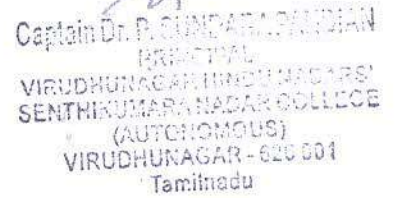 Captain Dr. P. SUNDARA PANDIAN
PRINCIPAL
VIRUDHUNAGAR HINDU NADARS'
SENTHIKUMARA NADAR COLLEGE
(AUTONOMOUS)
VIRUDHUNAGAR - 626 001
Tamilnadu